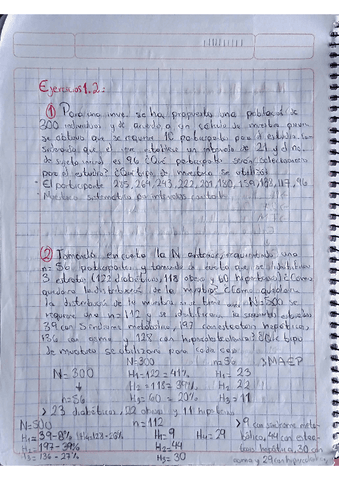 Ejercicios 1.2:
① Para una inve. se ha propuesto una población de
300 individuos y de acuerdo a un cálculo de muestra previo
se obtuvo que se requiere 10 participantes para el estudio, con-
siderando que el se establece un intervalo de 21 y el no.
de sujeto inicial es 96 ¿Qué participantes serán seleccionados
para el estudio? ¿Qué tipo de muestreo se utilizó?
· El participante 285, 264, 243, 222, 201, 180, 159, 138, 117, 96
· Muestreo sistemático por intervalos
② Tomando en cuenta la N anterior, requiriendo una
n=56 participantes y tomando en cuenta que se
3 estratos (122 diabéticos, 118 obeso y 60 hipertensos) ¿Cómo
quedaría la distribución de la muestra? ¿Cómo quedaría
la distribución de la muestra si se tiene una N=500 se
requiere una n=112 y se identifican los siguientes estratos
39 con síndrome metabólico, 197 con esteatosis hepática,
136 con asma y 128 con ? ¿Qué tipo
de muestreo se utilizaría para cada caso?
N=300 n=56 > MAEP
N=300 H1=122=41% H1=23
H2=118=39% H2 22
H3=60=20% H3=11
> 23 diabéticos, 22 obesos y 11 hipertensos
N=500 n=112 > 9 con síndrome meta-
H1=39-8% H4=128-26% H1=9 H4=29 bólico, 44 con estea-
H2=197-39% H2=44 tosis hepática, 30 con
H3=136-27% H3=30 asma y 29 con